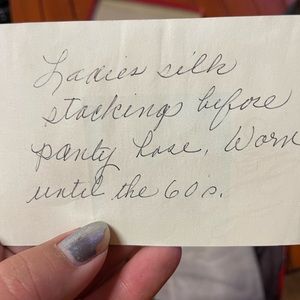 Ladies silk
stockings before
panty hose. Worn
until the 60's.